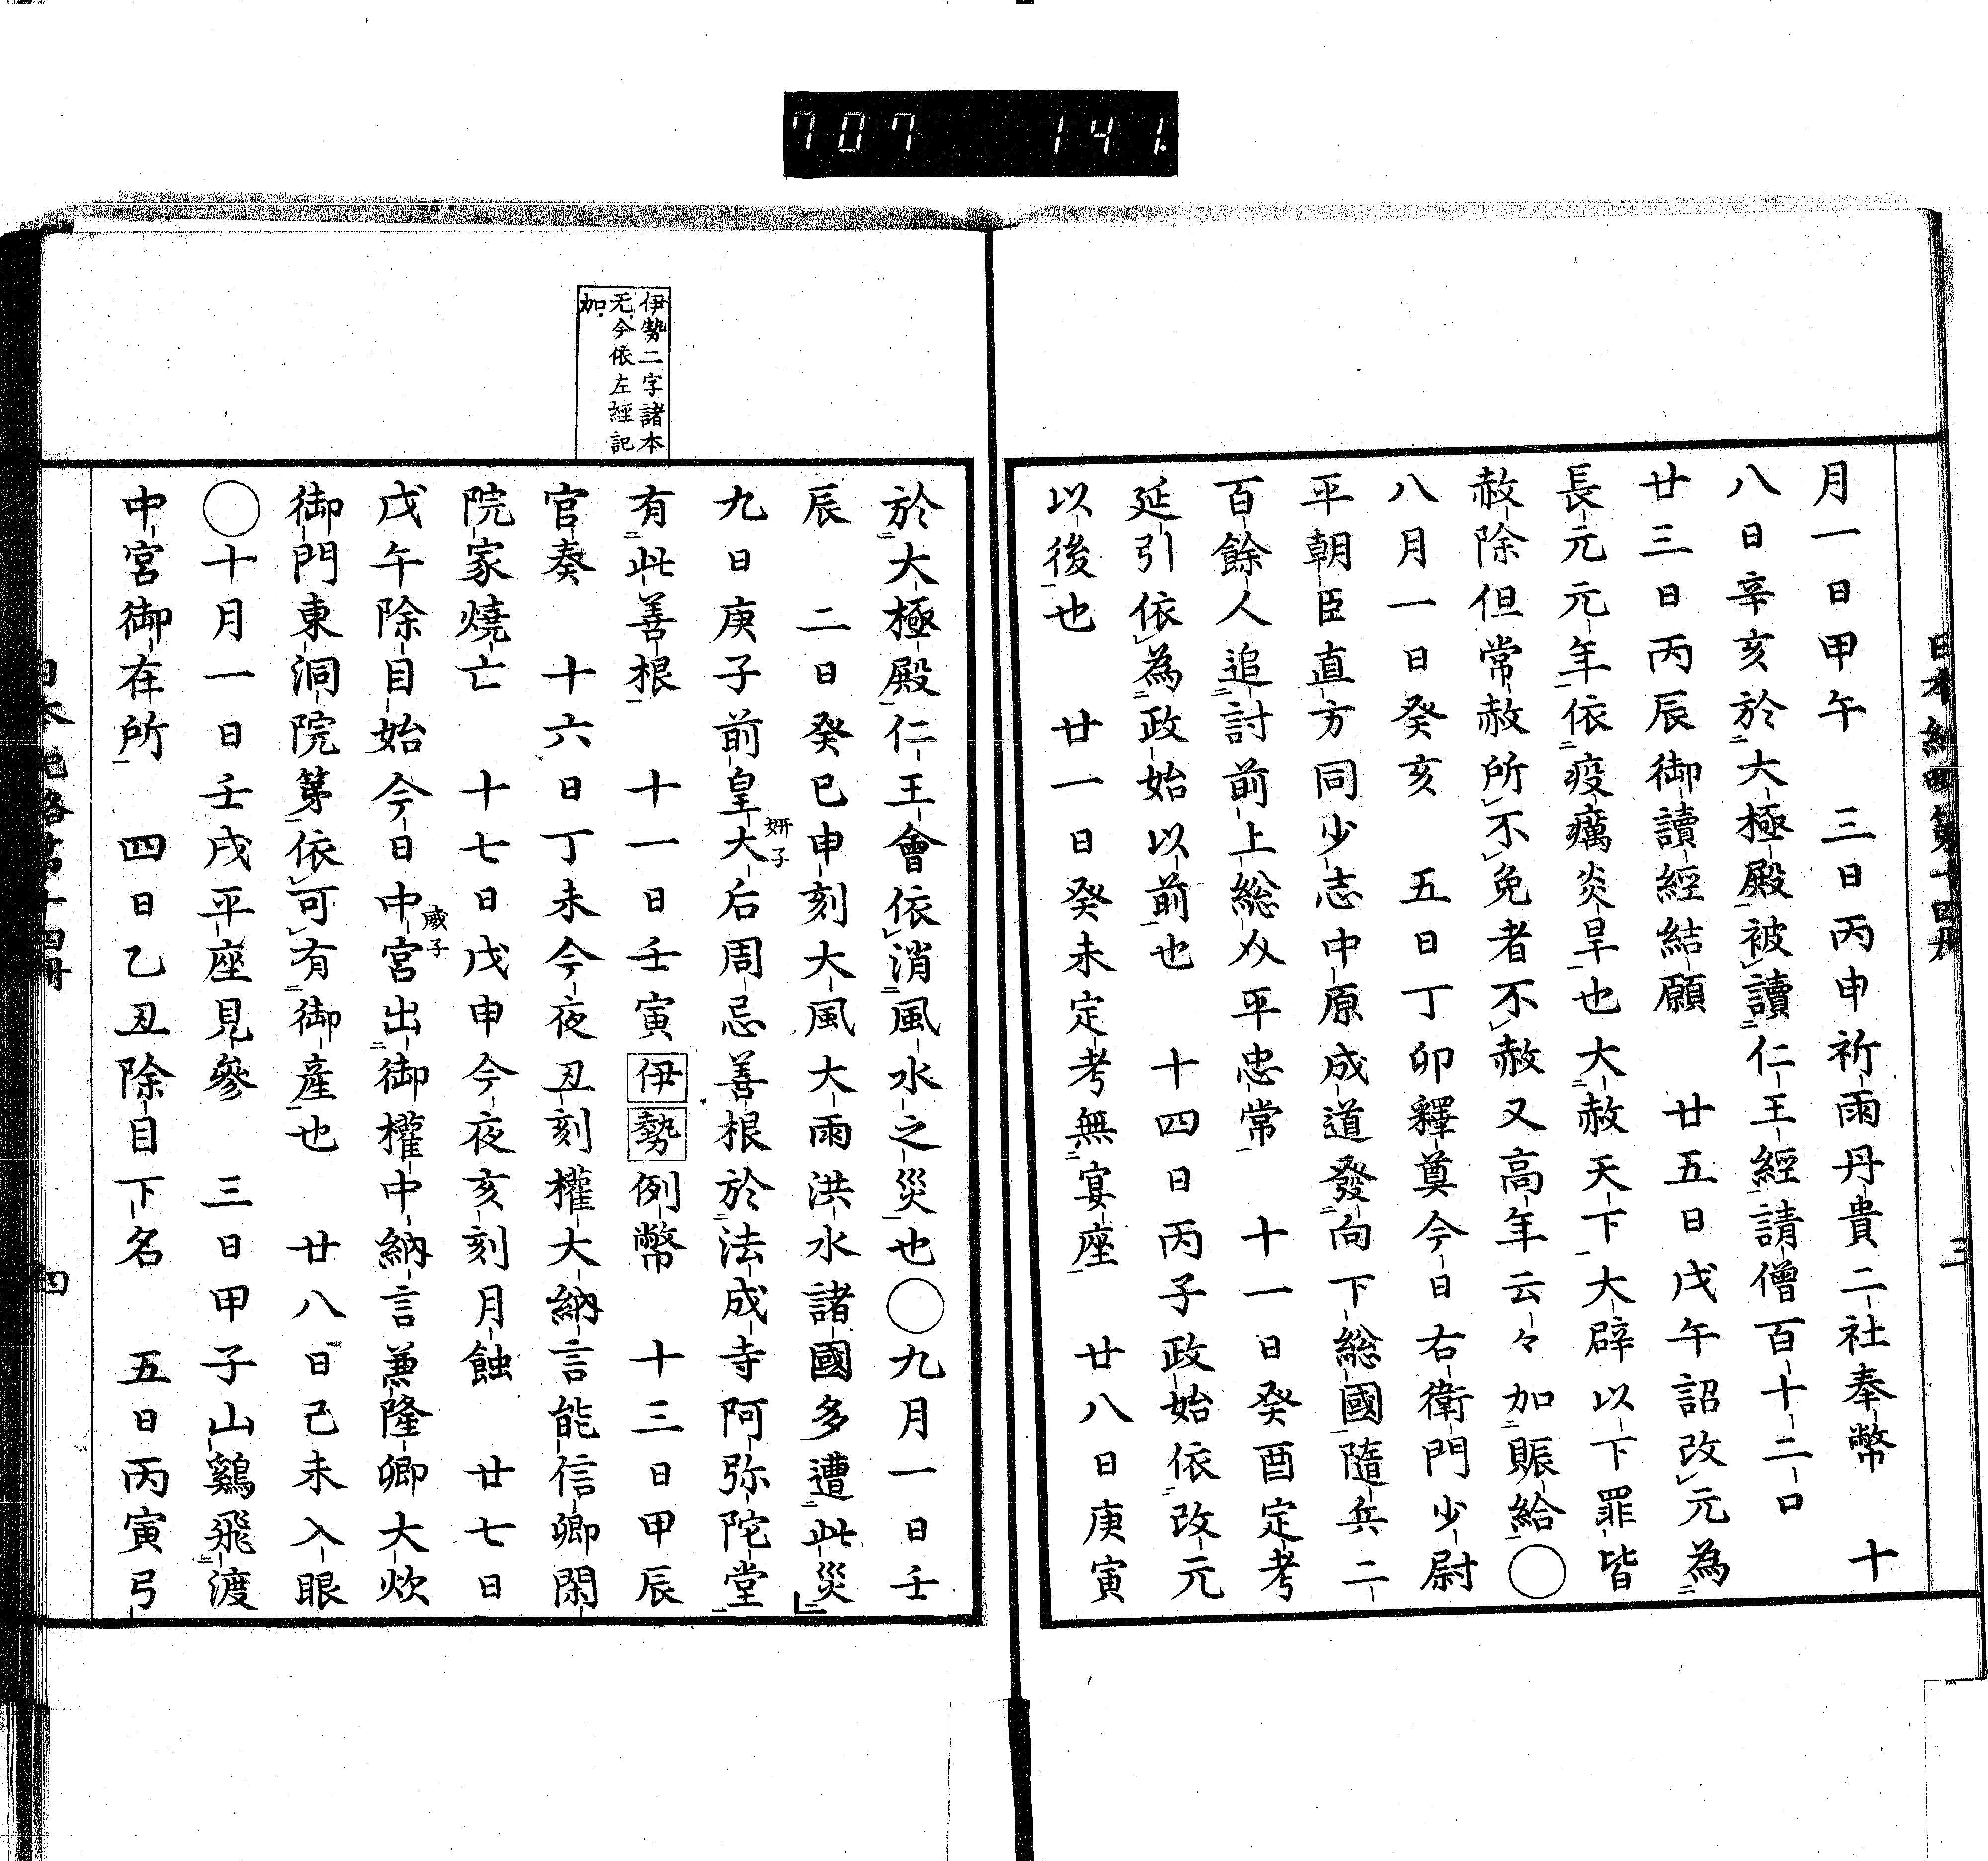 707 141.
月一日甲午　三日丙申祈雨丹貴二社奉幣　十
八日辛亥於大極殿被讀仁王經請僧百十二口
廿三日丙辰御讀經結願　廿五日戊午詔改元為
長元元年依疫癘炎旱也大赦天下大辟以下罪皆
赦除但常赦所不免者不赦又高年云々加賑給〇
八月一日癸亥　五日丁卯釋奠今日右衛門少尉
平朝臣直方同少志中原成道發向下総國隨兵二
百餘人追討前上総介平忠常　十一日癸酉定考
延引依為政始以前也　十四日丙子政始依改元
以後也　廿一日癸未定考無宴座　廿八日庚寅
伊勢二字諸本
无今依左經記
加
於大極殿仁王會依消風水之災也〇九月一日壬
辰　二日癸巳申刻大風大雨洪水諸國多遭此災
九日庚子前皇大后周忌善根於法成寺阿弥陀堂
妍子
有此善根　十一日壬寅伊勢例幣　十三日甲辰
官奏　十六日丁未今夜丑刻權大納言能信卿閑
院家燒亡　十七日戊申今夜亥刻月蝕　廿七日
戊午除目始今日中宮出御權中納言兼隆卿大炊
威子
御門東洞院第依可有御産也　廿八日己未入眼
〇十月一日壬戌平座見參　三日甲子山鷄飛渡
中宮御在所　四日乙丑除目下名　五日丙寅弓
四